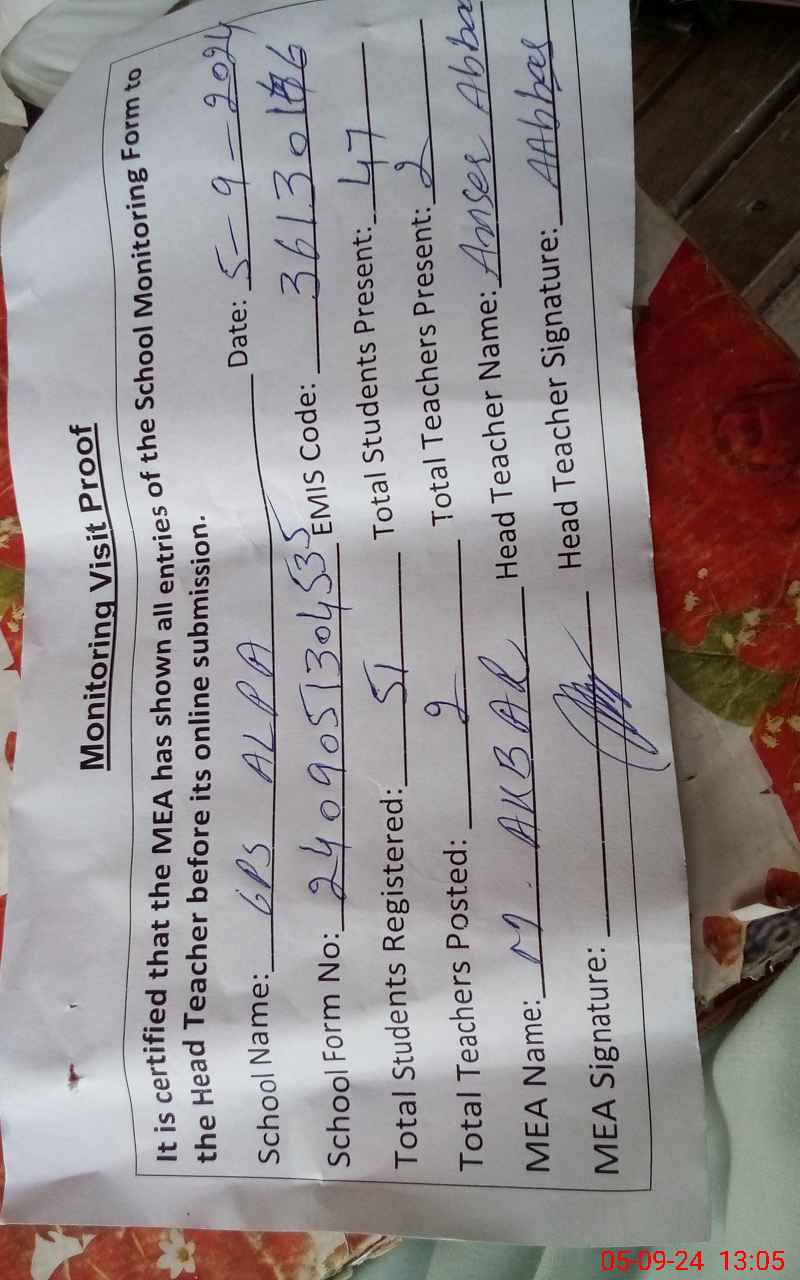 Monitoring Visit Proof
It is certified that the MEA has shown all entries of the School Monitoring Form to
the Head Teacher before its online submission.
School Name: GPS ALPA Date: 5-9-2024
School Form No: 2409051304535 EMIS Code: 36130186
Total Students Registered: 51 Total Students Present: 47
Total Teachers Posted: 2 Total Teachers Present: 2
MEA Name: M. AKBAR Head Teacher Name: Anser Abbas
MEA Signature: Head Teacher Signature: AAbbas
05-09-24 13:05